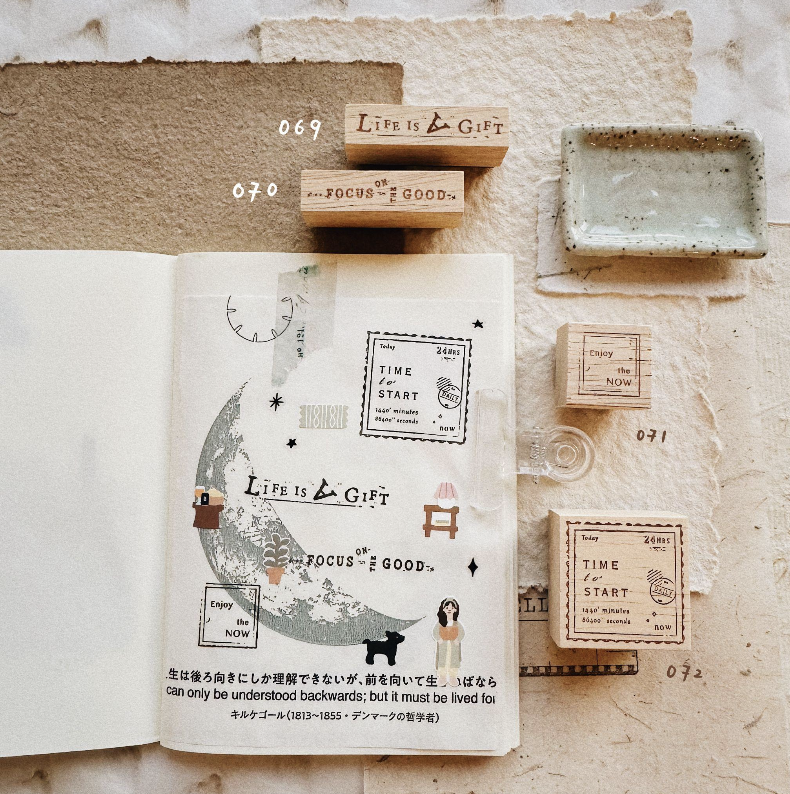 069
LIFE IS A GIFT
070
FOCUS ON THE GOOD
No 191
Today
24HRS
TIME
to
START
DAILY
1440' minutes
86400" seconds
now
LIFE IS A GIFT
FOCUS ON THE GOOD
Enjoy
the
NOW
生は後ろ向きにしか理解できないが、前を向いて生 ばなら
can only be understood backwards; but it must be lived for
キルケゴール(1813~1855・デンマークの哲学者)
Enjoy
the
NOW
071
Today
24HRS
TIME
to
START
DAILY
1440' minutes
86400" seconds
now
072